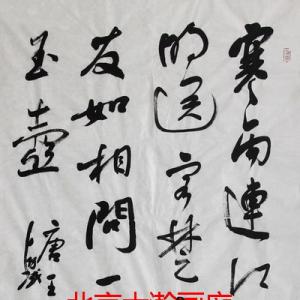 寒雨連江
明送客楚
友如相問一
玉壺
唐王
北京大瀚画廊